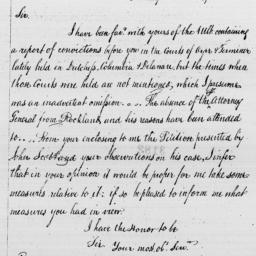 Sir.
I have been fav.d with yours of the Ult.o containing
a report of convictions before you in the Courts of Oyer & Terminer
lately held in Dutchess, Columbia & Delaware, but the times when
those Courts were held are not mentioned, which I presume
was an inadvertent omission. ... The absence of the Attorney
General from Rockland, and his reasons have been attended
to. ... From your inclosing to me the Petition presented by
John your Observations on his case, I infer
that in your opinion it would be proper for me take some
measures relative to it: if so be pleased to inform me what
measures you had in view.
I have the Honor to be
Sir Your most ob. Serv.t